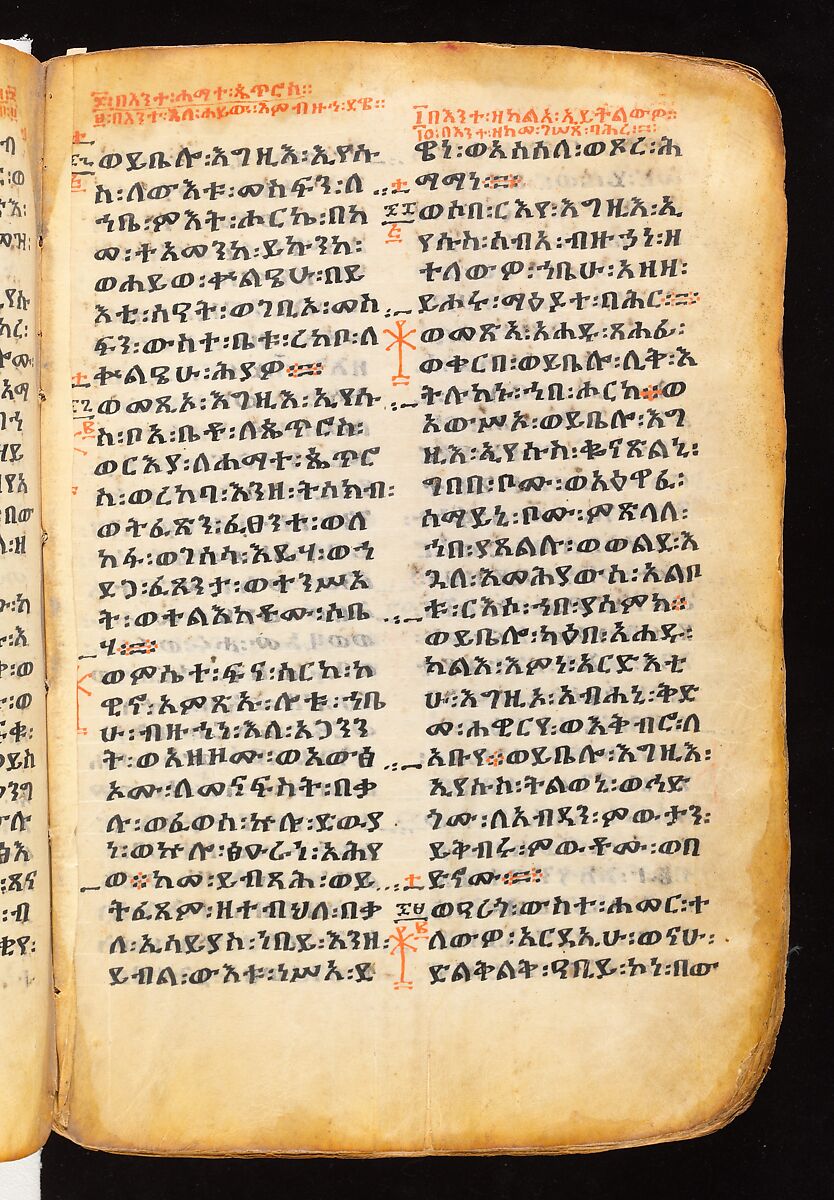 ፰፡በእንተ፡ሐማተ፡ጴጥሮስ፡፡
፱፡በእንተ፡እለ፡ሐይው፡እምብዙኅ፡ደዌ፡፡
ወይቤሎ፡እግዚእ፡ኢየሱ
ስ፡ለውእቱ፡መስፍን፡ለ
ኀቤ፡ምእት፡ሑርኬ፡በከ
መ፡ተአመንከ፡ይኩንከ፡
ወሐይወ፡ቍልዔሁ፡በይ
እቲ፡ሰዓት፡ወገቢኦ፡መስ
ፍን፡ውስተ፡ቤቱ፡ረከቦ፡ለ
ቍልዔሁ፡ሕያዎ፡፡
ወመጺኦ፡እግዚእ፡ኢየሱ
ስ፡ቦአ፡ቤቶ፡ለጴጥሮስ፡
ወርእያ፡ለሐማተ፡ጴጥሮ
ስ፡ወረከባ፡እንዘ፡ትሰክብ፡
ወትፈጽን፡ፈፀንተ፡ወለ
ከፋ፡ወገሰሳ፡እዴሃ፡ወኀ
ደጋ፡ፈጸንታ፡ወተንሥአ
ት፡ወተልእከቶሙ፡ሶቤ
ሃ፡፡
ወምሴተ፡ፍና፡ሰርክ፡ከ
ዊኖ፡አምጽኡ፡ሎቱ፡ኀቤ
ሁ፡ብዙኀነ፡እለ፡አጋንን
ት፡ወአዘዞሙ፡ወአውፅ
ኦሙ፡ለመናፍስት፡በቃ
ሉ፡ወፈወሰ፡ኵሉ፡ድውያ
ነ፡ወኵሎ፡ፅዑራነ፡አሕየ
ወ፡ከመ፡ይብጻሕ፡ወይ
ትፈጸም፡ዘተብህለ፡በቃ
ለ፡ኢሳይያስ፡ነቢይ፡እንዘ፡
ይብል፡ውእቱ፡ነሥአ፡ደ
፲በእንተ፡ዘካልእ፡ኢይትልውዎ፡፡
፲፩፡በእንተ፡ዘከመ፡ገሠጸ፡ባሕረ፡፡
ዌነ፡ወአሰሰለ፡ወጾረ፡ሕ
ማማነ፡፡
ወሶበ፡ርእየ፡እግዚእ፡ኢ
የሱስ፡ሰብአ፡ብዙኃነ፡ዘ
ተለውዎ፡ኀቤሁ፡አዘዘ፡
ይሑሩ፡ማዕዶተ፡ባሕር፡፡
ወመጽአ፡አሐዱ፡ጸሐፊ፡
ወቀርበ፡ወይቤሎ፡ሊቅ፡እ
ትሉከኑ፡ኀበ፡ሖርከ፡ወ
አውሥኦ፡ወይቤሎ፡እግ
ዚእ፡ኢየሱስ፡ቈናጽልኒ፡
ግበበ፡ቦሙ፡ወአዕዋፈ፡
ሰማይኒ፡ቦሙ፡ምጽላለ፡
ኀበ፡ያጸልሉ፡ወወልደ፡እ
ጓለ፡እመሕያውሰ፡አልቦ
ቱ፡ርእሶ፡ኀበ፡ያሰምክ፡፡
ወይቤሎ፡ካዕበ፡አሐዱ፡
ካልእ፡እምነ፡አርድእቲ
ሁ፡እግዚኦ፡አብሐኒ፡ቅድ
መ፡ሐዊርየ፡ወእቅብሮ፡ለ
አቡየ፡፡ወይቤሎ፡እግዚእ፡
ኢየሱስ፡ትልወኒ፡ወኅድ
ጎሙ፡ለአብዳን፡ምውታን፡
ይቅብሩ፡ምውቶሙ፡ወበ
ድኖሙ፡፡
ወዓሪጎ፡ውስተ፡ሐመር፡ተ
ለውዎ፡አርዳኢሁ፡ወናሁ፡
ድልቅልቅ፡ዓቢይ፡ኮነ፡በው